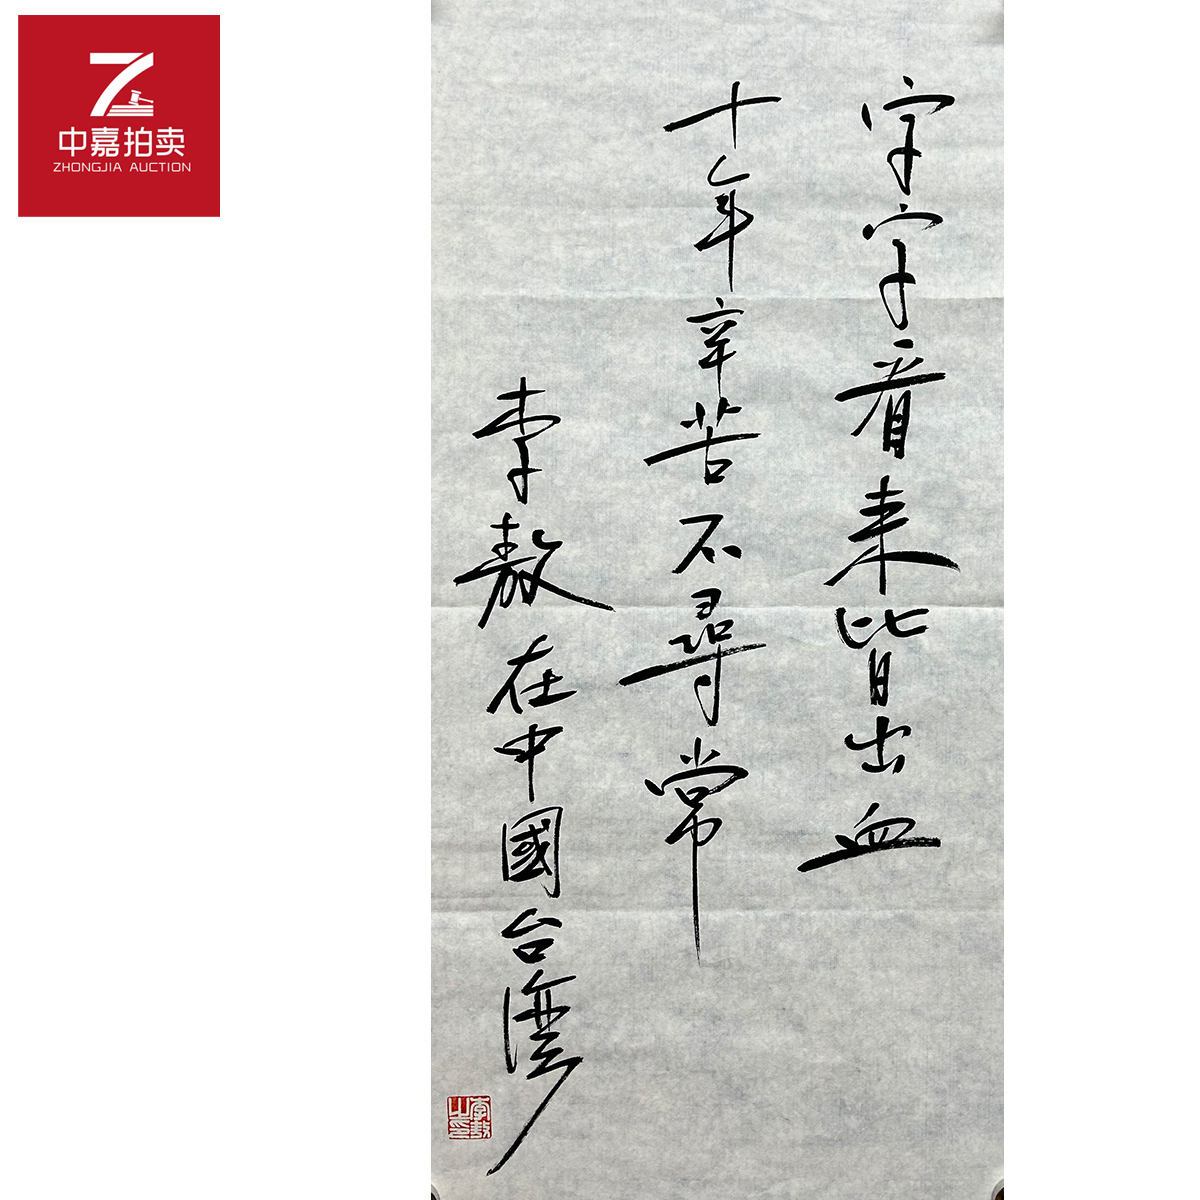 中嘉拍卖
ZHONGJIA AUCTION
字字看来皆出血
十年辛苦不尋常
李敖在中國台灣
李敖之印